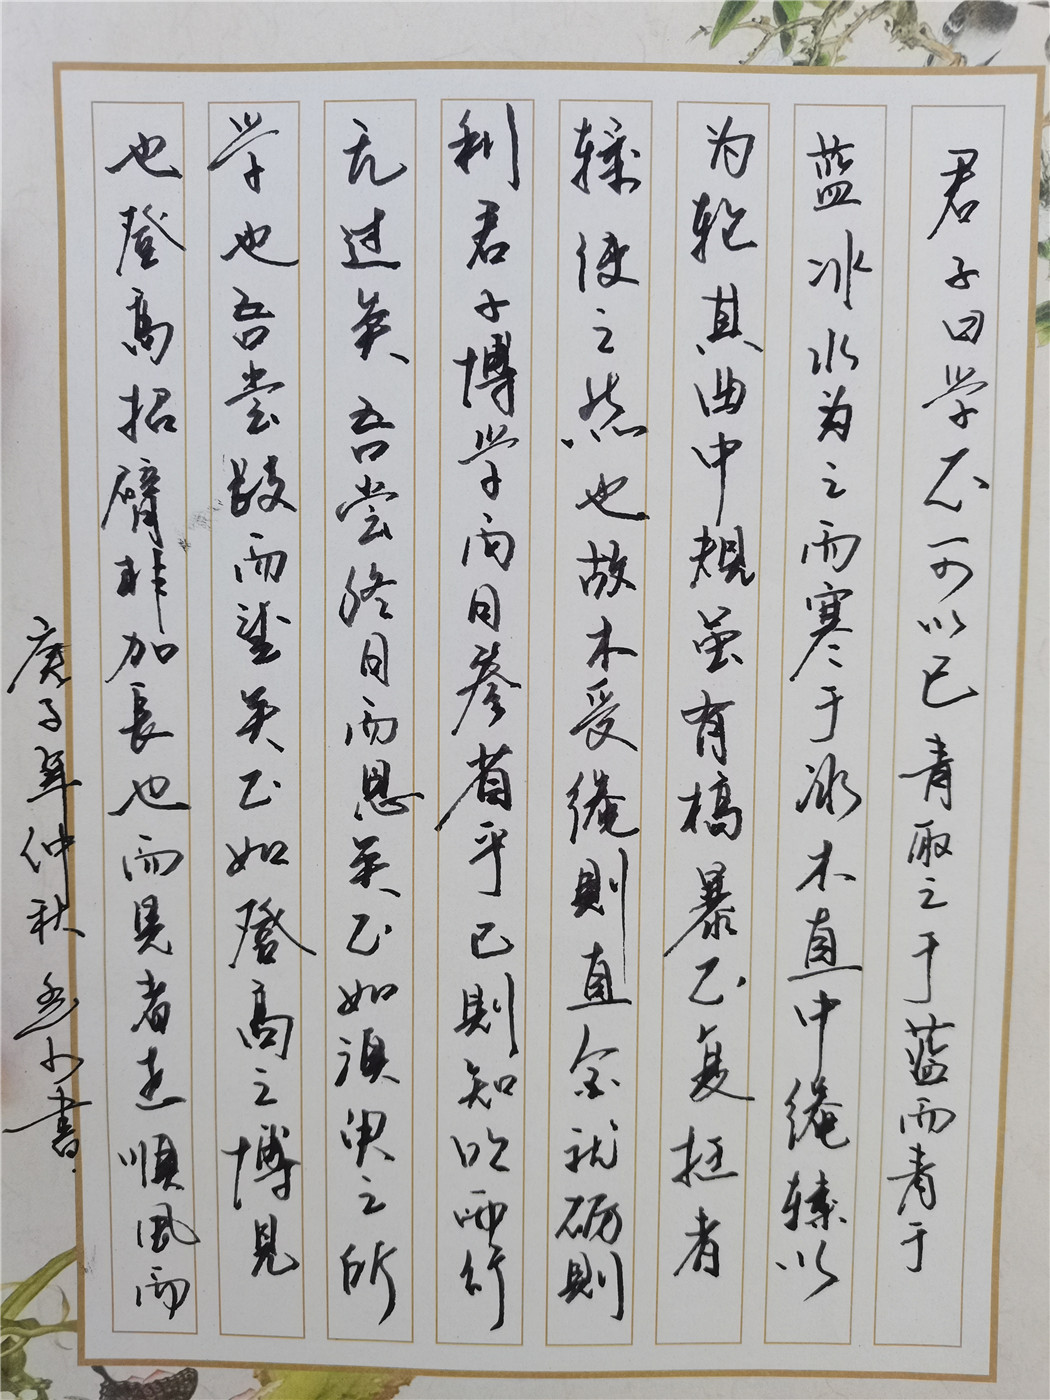 君子曰学不可以已青取之于蓝而青于
蓝冰水为之而寒于水木直中绳輮以
为轮其曲中规虽有槁暴不复挺者
輮使之然也故木受绳則直金就砺則
利君子博学而日参省乎己則知明而行
无过矣吾尝终日而思矣不如须臾之所
学也吾尝跂而望矣不如登高之博見
也登高招臂非加長也而見者远順風而
庚子年仲秋書